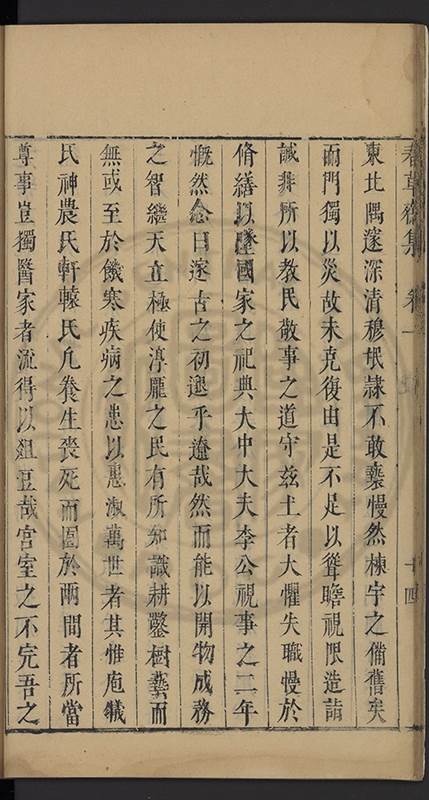 春草齋集 卷一 十四
東北隅邃深清穆氓隸不敢褻慢然棟宇之備舊矣
而門獨以災故未克復由是不足以聳瞻視限造詣
誠非所以教民敬事之道守茲土者大懼失職慢於
脩繕以墜國家之祀典大中大夫李公視事之二年
慨然念曰邃古之初邈乎遼哉然而能以開物成務
之智繼天立極使淳龎之民有所知識耕鑿樹藝而
無或至於饑寒疾病之患以惠淑萬世者其惟庖犧
氏神農氏軒轅氏凡養生喪死而囿於兩間者所當
尊事豈獨醫家者流得以俎豆哉宮室之不完吾之